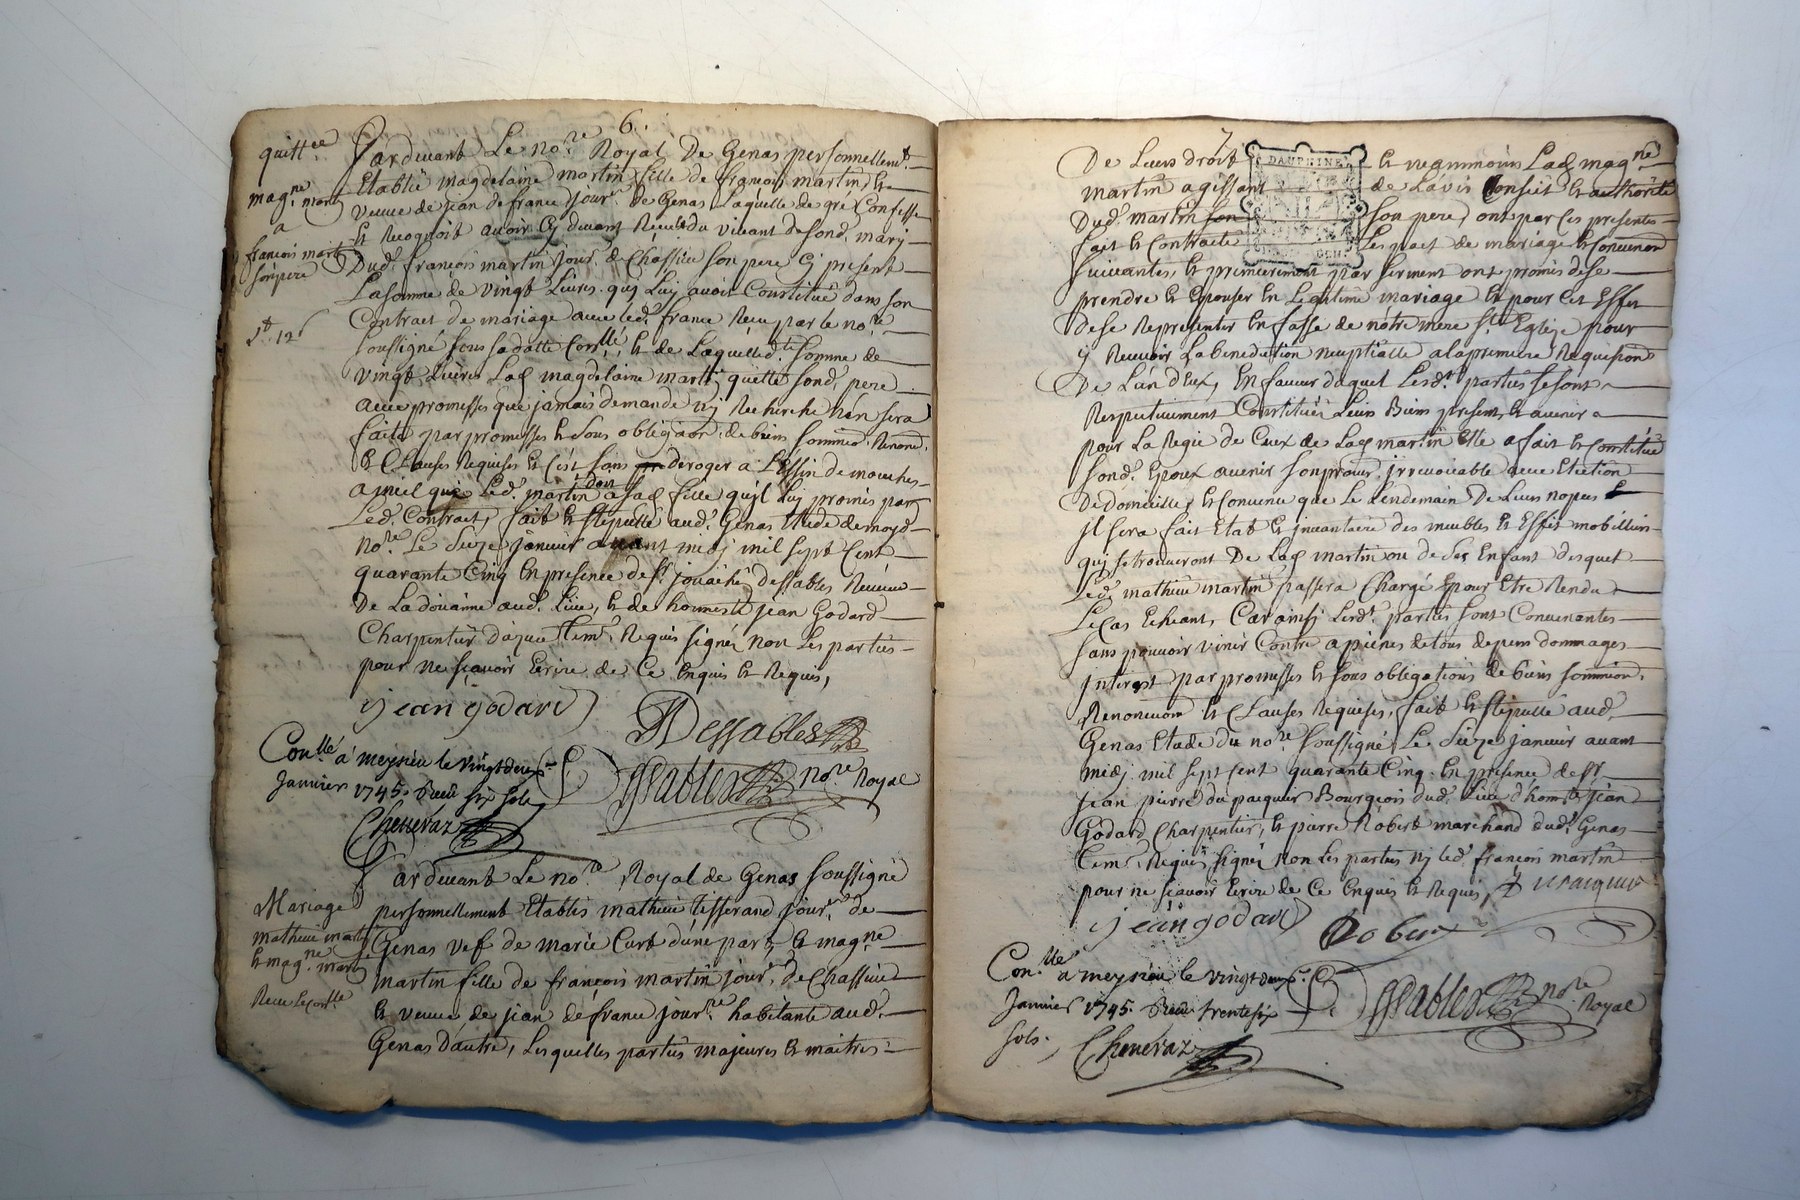 6.
quitt.ce
magne. mart
a
françois mart
son pere
1tt. 12s
Pardevant Le no.re Royal De Genas personnellemt.
Etablie magdelaine martin fille de françois martin, et
veuve de jean de france jour.r de Genas Laquelle de gré Confesse
et Recognoit avoir Cy devant Receu du vivant de sond. mary
Dud. françois martin jour. de Chassieu son pere Cy present
La somme de vingt Livres quj Luj avoit Constitué dans son
Contract de mariage avec led. france Receu par le no.re
soussigné sous sa datte Conllé, et de Laquelle d.te somme de
vingt Livres Lad. magdelaine martin quitte sond. pere
avec promesses que jamais demande nj Recherche n'en sera
faite par promesses et sous obligaon. de biens sommiss. Renonc.
et Clauses Requises et C'est sans deroger a L'Essin de mouches
a miel que Led. martin doit a sad. fille qu'il Luj promis par
Led. Contract, fait et stipullé aud. Genas Etude de moyd.
no.re Le Seize janvier avant midj mil sept Cent
quarante Cinq En presence de sr. jouachin dessables Receveur
De La doüanne aud. Lieu, et de honneste jean Godard
Charpentier dajeu tem.s Requis signés non Les parties
pour ne sçavoir Ecrire de Ce Enquis et Requis,
jean godard
Dessables
Conllé a meysieu le vingt deux
Janvier 1745. Receu six sols
Cheneraz
Dessables no.re Royal
Pardevant Le no.re Royal de Genas soussigné
Mariage
mathieu martin
et mag.ne mart
Receu Le Conllé
personnellement Etablis mathieu tisserand jour.r de
Genas vef de marie Curt d'une part, et mag.ne
martin fille de françois martin jour.r de Chassieu
et veuve de jean de france jour.r habitante aud.
Genas d'autre, Lesquelles parties majeures et maitres
7
DAUPHINE
De Leurs droit et neanmoins Lad. mag.ne
martin agissant de L'avis Conseil et authorité
Dud. martin son pere, ont par Ces presentes
fait et Contracté Les pact de mariage et Convenons
suivantes, et premierement par serment ont promis de se
prendre et Epouser En Legitime mariage et pour Cet Effet
de se Representer En fasse de notre mere Ste Eglize pour
y Recevoir La benediction nuptialle a la premiere Requision
De L'un d'Eux, En faveur duquel Lesd. parties se sont
Respectivement Constitués Leurs Biens present et avenir
pour La Regie de Ceux de Lad. martin Elle a fait et Constitué
sond. Epoux avenir son procur. irrevocable avec Election
De domicille, et Convenu que Le Lendemain De Leurs nopces
Jl sera fait Etat et jnvantaire des meubles et Effet mobilliers
quj se trouveront De Lad. martin ou de ses Enfant desquel
Led. mathieu martin passera Chargé pour Etre Rendu
Le Cas Echeant, Car ainsj Lesd. parties sont Convenantes
sans pouvoir venir Contre a peines de tous depens dommages
jnterest par promesses et sous obligations de biens sommion.
Renoncion et Clauses Requises, fait et stipullé aud.
Genas Etude du no.re soussigné Le Seize janvier avant
midj mil sept Cent quarante Cinq En presence de sr.
jean pierre du pacquier Bourgeois dud. Lieu d'honneste jean
Godard Charpentier, et pierre Robert marchand dud. Genas
tem.s Requis signés non Les parties nj led. françois martin
pour ne sçavoir Ecrire de Ce Enquis et Requis,
jean godard
Robert
Conllé a meysieu le vingt deux
Janvier 1745. Receu trente six
sols.
Cheneraz
Dessables no.re Royal